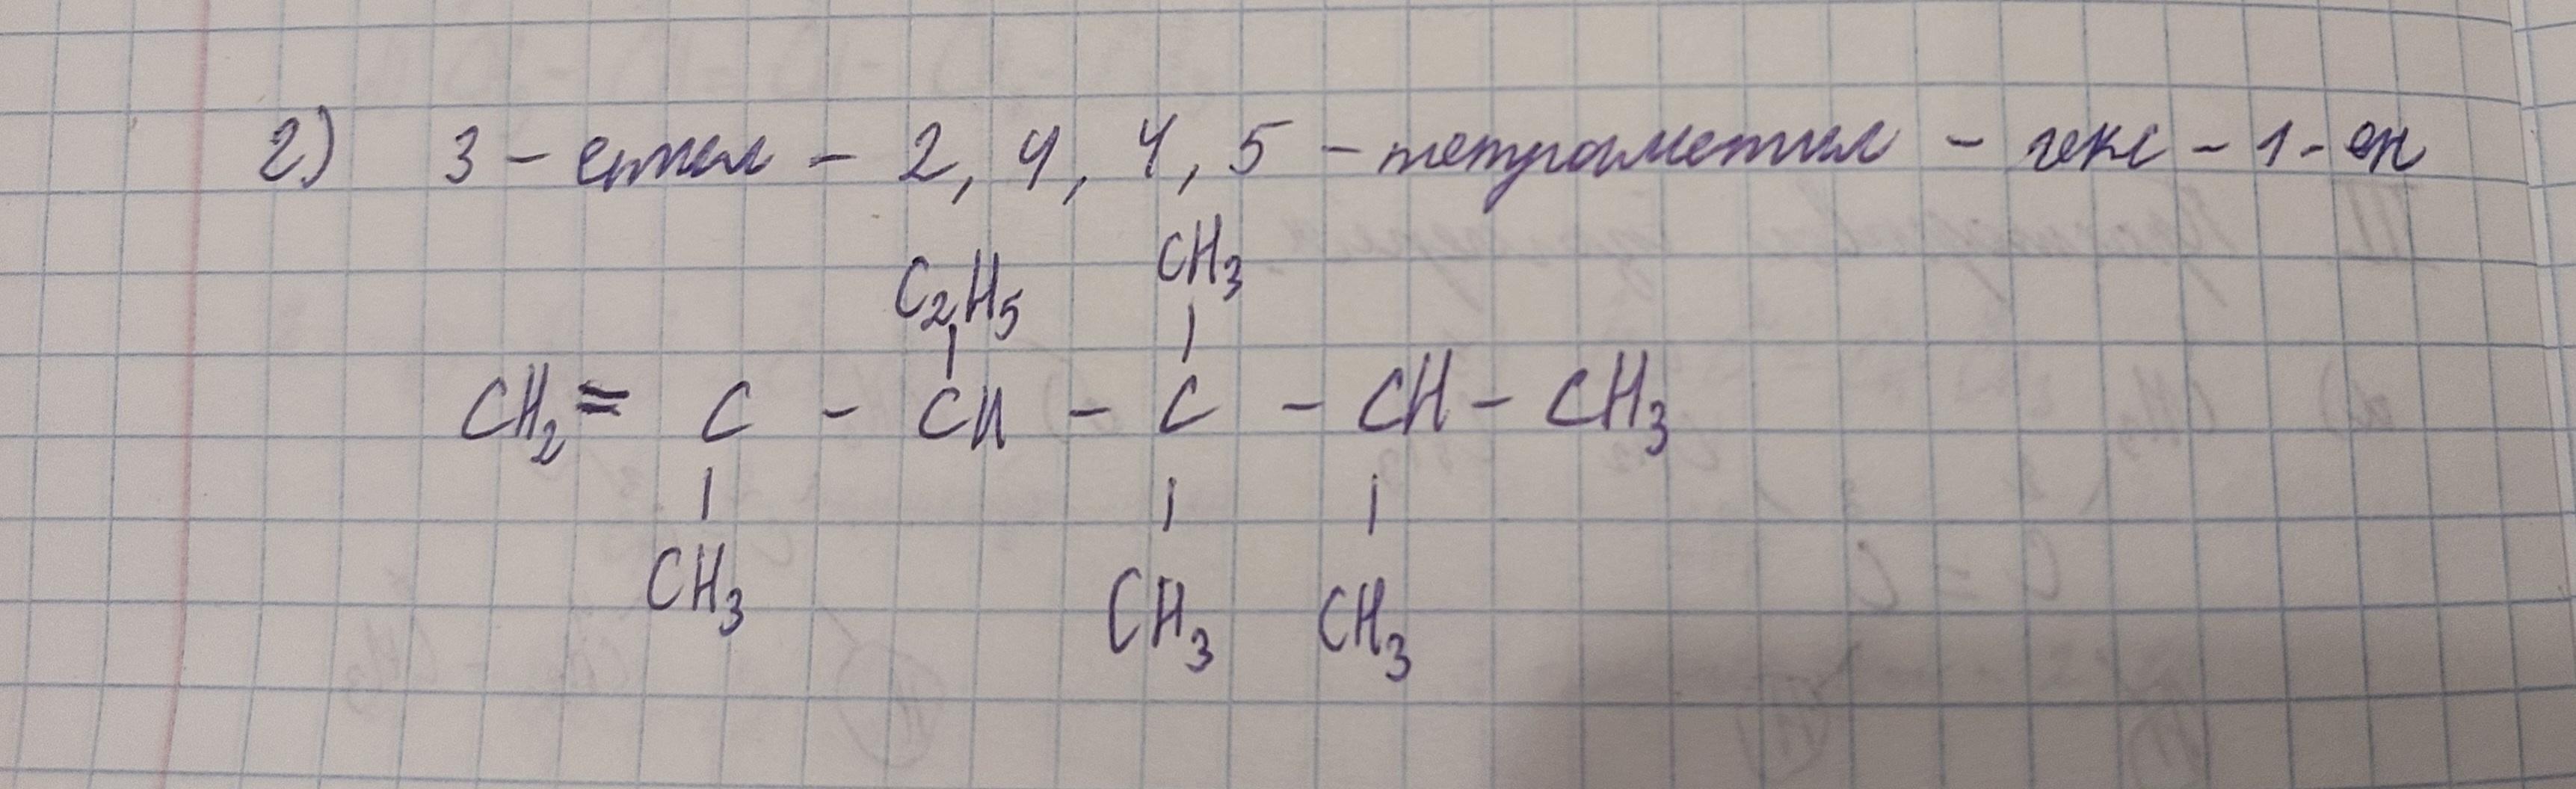 2) 3 - етил - 2, 4, 4, 5 - тетраметил - гекс - 1 - ен
C₂H₅ CH₃
CH₂ = C - CH - C - CH - CH₃
CH₃ CH₃ CH₃